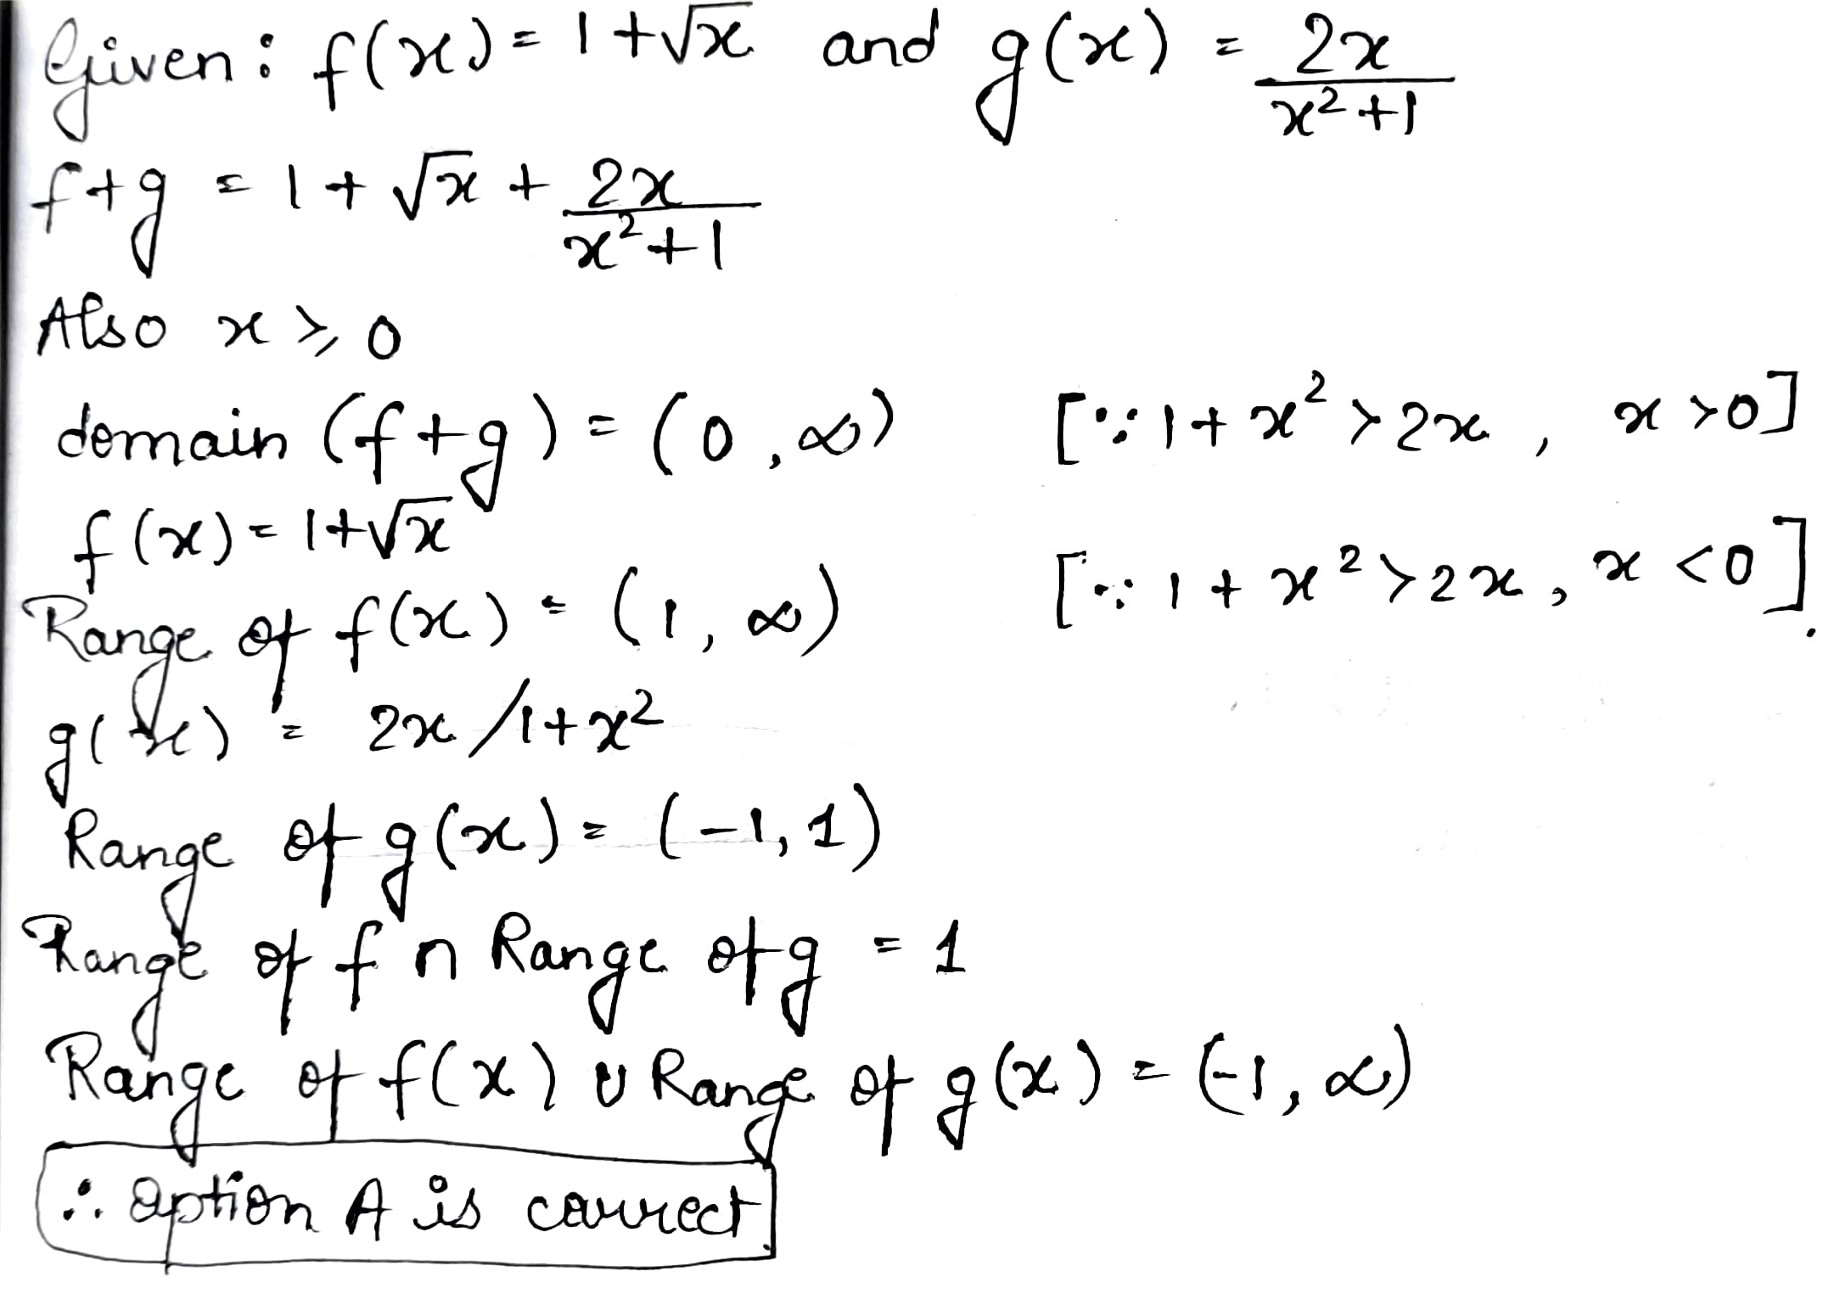 Given: f(x) = 1+√x and g(x) = 2x/(x²+1)
f+g = 1+√x + 2x/(x²+1)
Also x ⩾ 0
domain (f+g) = (0, ∞) [∵ 1+x² > 2x, x > 0]
f(x) = 1+√x
[∵ 1+x² > 2x, x < 0]
Range of f(x) = (1, ∞)
g(x) = 2x/1+x²
Range of g(x) = (-1, 1)
Range of f ∩ Range of g = 1
Range of f(x) ∪ Range of g(x) = (-1, ∞)
∴ option A is correct